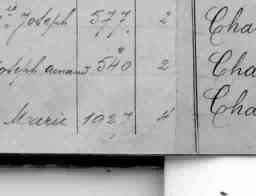 Joseph 577 2 Cha
Joseph Amand 540 2 Cha
Marie 1027 4 Cha